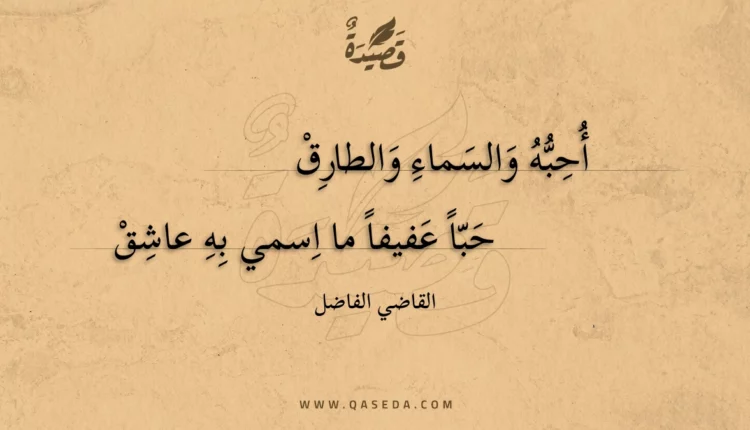 قَصِيدَةٌ
أُحِبُّهُ وَالسَماءِ وَالطارِقْ
حَبّاً عَفيفاً ما اِسمي بِهِ عاشِقْ
القاضي الفاضل
WWW.QASEDA.COM